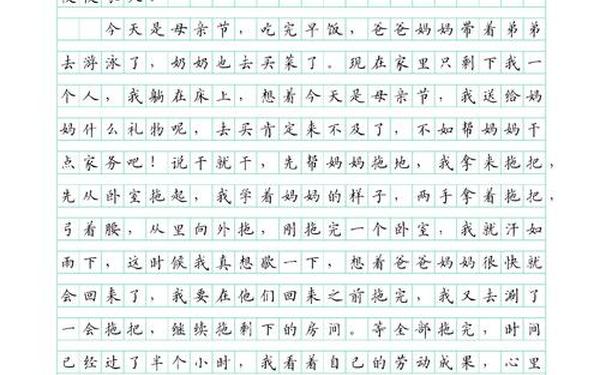 今天是母亲节，吃完早饭，爸爸妈妈带着弟弟
去游泳了，奶奶也去买菜了。现在家里只剩下我一
个人，我躺在床上，想着今天是母亲节，我送给妈
妈什么礼物呢，去买肯定来不及了，不如帮妈妈干
点家务吧！说干就干，先帮妈妈拖地，我拿来拖把，
先从卧室拖起，我学着妈妈的样子，两手拿着拖把，
弓着腰，从里向外拖，刚拖完一个卧室，我就汗如
雨下，这时候我真想歇一下，想着爸爸妈妈很快就
会回来了，我要在他们回来之前拖完，我又去涮了
一会拖把，继续拖剩下的房间。等全部拖完，时间
已经过了半个小时，我看着自己的劳动成果，心里